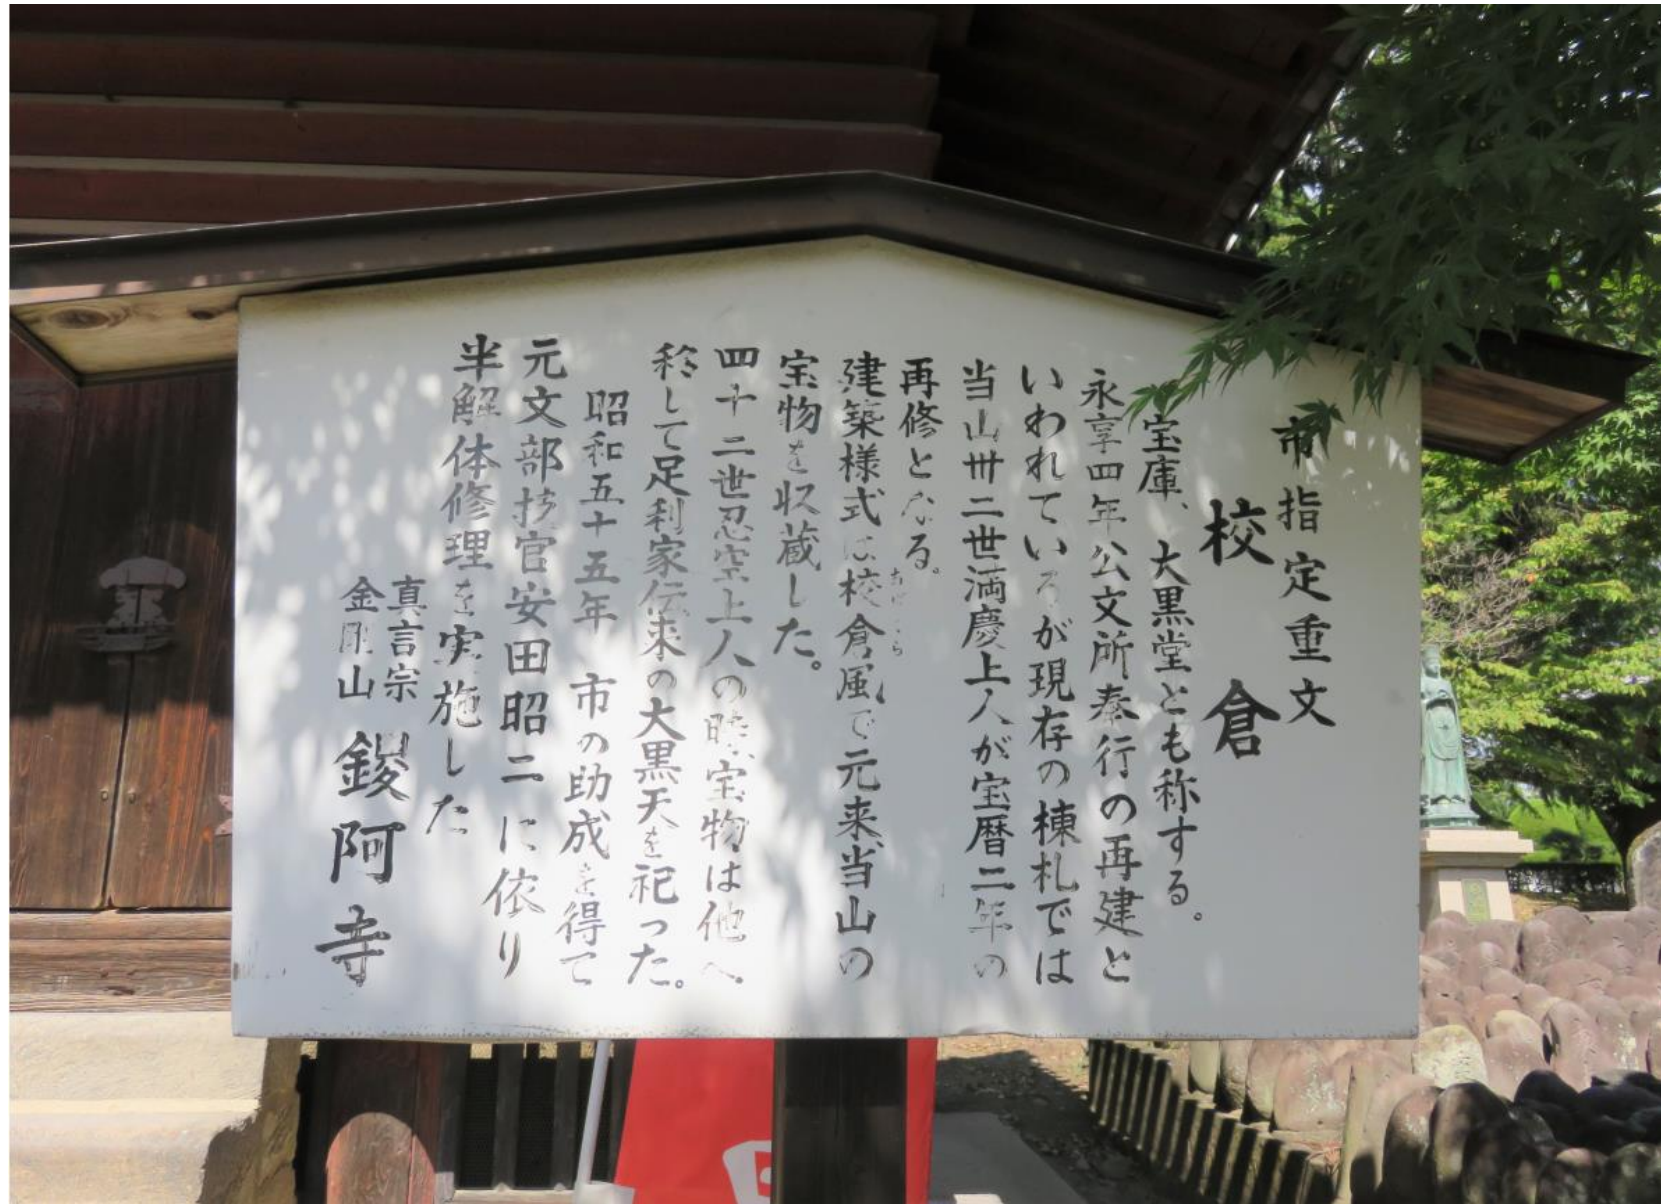 市指定重文
校倉
宝庫、大黒堂とも称する。
永享四年公文所奉行の再建と
いわれているが現存の棟札では
当山卅二世満慶上人が宝暦二年の
再修となる。
建築様式は校倉風で元来当山の
あぜくら
宝物を収蔵した。
四十二世忍空上人の時、宝物は他へ
移して足利家伝来の大黒天を祀った。
昭和五十五年 市の助成を得て
元文部技官安田昭二に依り
半解体修理を実施した
真言宗
金剛山 鑁阿寺